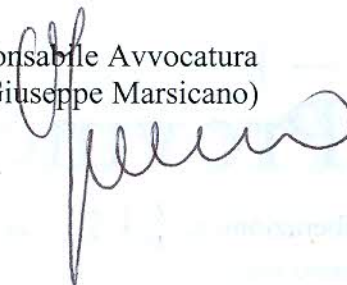 onsabile Avvocatura
Giuseppe Marsicano)